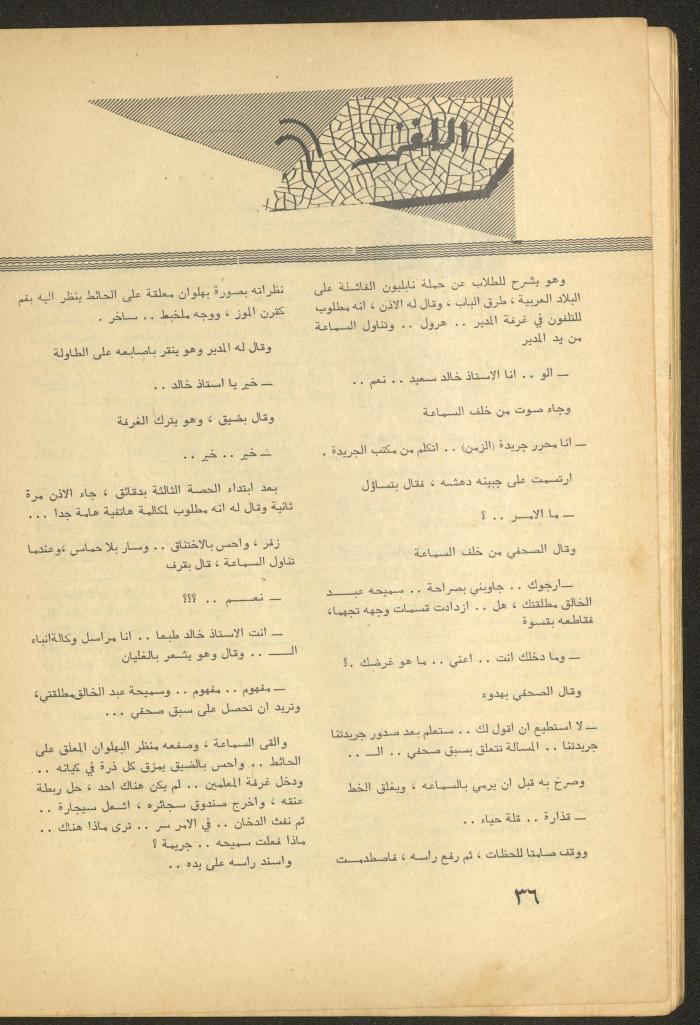 اللغز
وهو يشرح للطلاب عن حملة نابليون الفاشلة على
البلاد العربية ، طرق الباب ، وقال له الاذن ، انه مطلوب
للتلفون في غرفة المدير . . هرول . . وتناول السماعة
من يد المدير
ـ الو . . انا الاستاذ خالد سعيد . . نعم . .
وجاء صوت من خلف السماعة
ـ انا محرر جريدة (الزمن) . . اتكلم من مكتب الجريدة .
ارتسمت على جبينه دهشه ، فقال بتساؤل
ـ ما الامـر . . ؟
وقال الصحفي من خلف السماعة
ـ ارجوك . . جاوبني بصراحة . . سميحه عبـد
الخالق مطلقتك ، هل . . ازدادت قسمات وجهه تجهما،
فقاطعه بقسوة
ـ وما دخلك انت . . اعني . . ما هو غرضك .؟
وقال الصحفي بهدوء
ـ لا استطيع ان اقول لك . . ستعلم بعد صدور جريدتنا
جريدتنا . . المسالة تتعلق بسبق صحفي . . الـ . .
وصرخ به قبل ان يرمي بالسماعه ، ويغلق الخط
ـ قذارة . . قلة حياء . .
ووقف صامتا للحظات ، ثم رفع راسه ، فاصطدمـت
نظراته بصورة بهلوان معلقة على الحائط ينظر اليه بفم
كقرن الموز ، ووجه ملخبط . . ساخر .
وقال له المدير وهو ينقر باصابعه على الطاولة
ـ خير يا استاذ خالد . .
وقال بضيق ، وهو يترك الغرفة
ـ خير . . خير . .
بعد ابتداء الحصة الثالثة بدقائق ، جاء الاذن مرة
ثانية وقال له انه مطلوب لمكالمة هاتفية هامة جدا . . .
زفر ، واحس بالاختناق . . وسار بلا حماس ،وعندما
تناول السماعة ، قال بقرف
ـ نعـم . . ؟؟؟
ـ انت الاستاذ خالد طبعا . . انا مراسل وكالة انباء
الـ . . وقال وهو يشعر بالغليان
ـ مفهوم . . مفهوم . . وسميحة عبد الخالق مطلقتي،
وتريد ان تحصل على سبق صحفي . . .
والقى السماعة ، وصفعه منظر البهلوان المعلق على
الحائط . . واحس بالضيق يمزق كل ذرة في كيانه . .
ودخل غرفة المعلمين . . لم يكن هناك احد ، حل ربطة
عنقه ، واخرج صندوق سجائره ، اشعل سيجارة . .
ثم نفث الدخان . . في الامر سر . . ترى ماذا هناك . .
ماذا فعلت سميحه . . جريمة ؟
واسند راسه على يده . .
٣٦